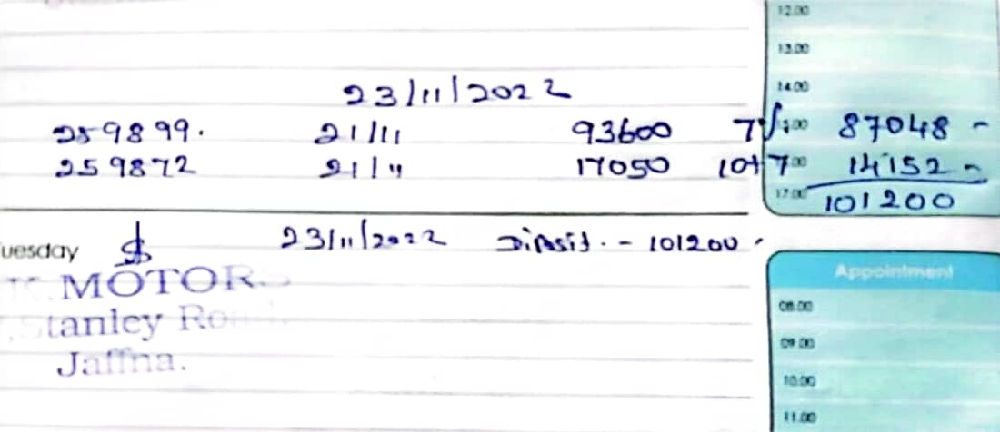 12.00
13.00
14.00
23/11/2022
259899. 21/11 93600 7% 15.00 87048 -
259872 21/11 17050 10+7 16.00 14152 -
17.00 101200
uesday 23/11/2022 Diposit. - 101200 -
MOTOR
Stanley Ro
Jaffna.
Appointment
08.00
09.00
10.00
11.00